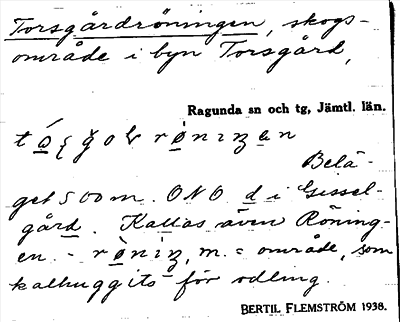 Torsgårdröningen, skogs-
område i byn Torsgård,
Ragunda sn och tg, Jämtl. län.
Belä-
get 500 m. ONO d i Gissel-
gård. Kallas även Röning-
en. - , m. = område, som
kalhuggits för odling.
BERTIL FLEMSTRÖM 1938.